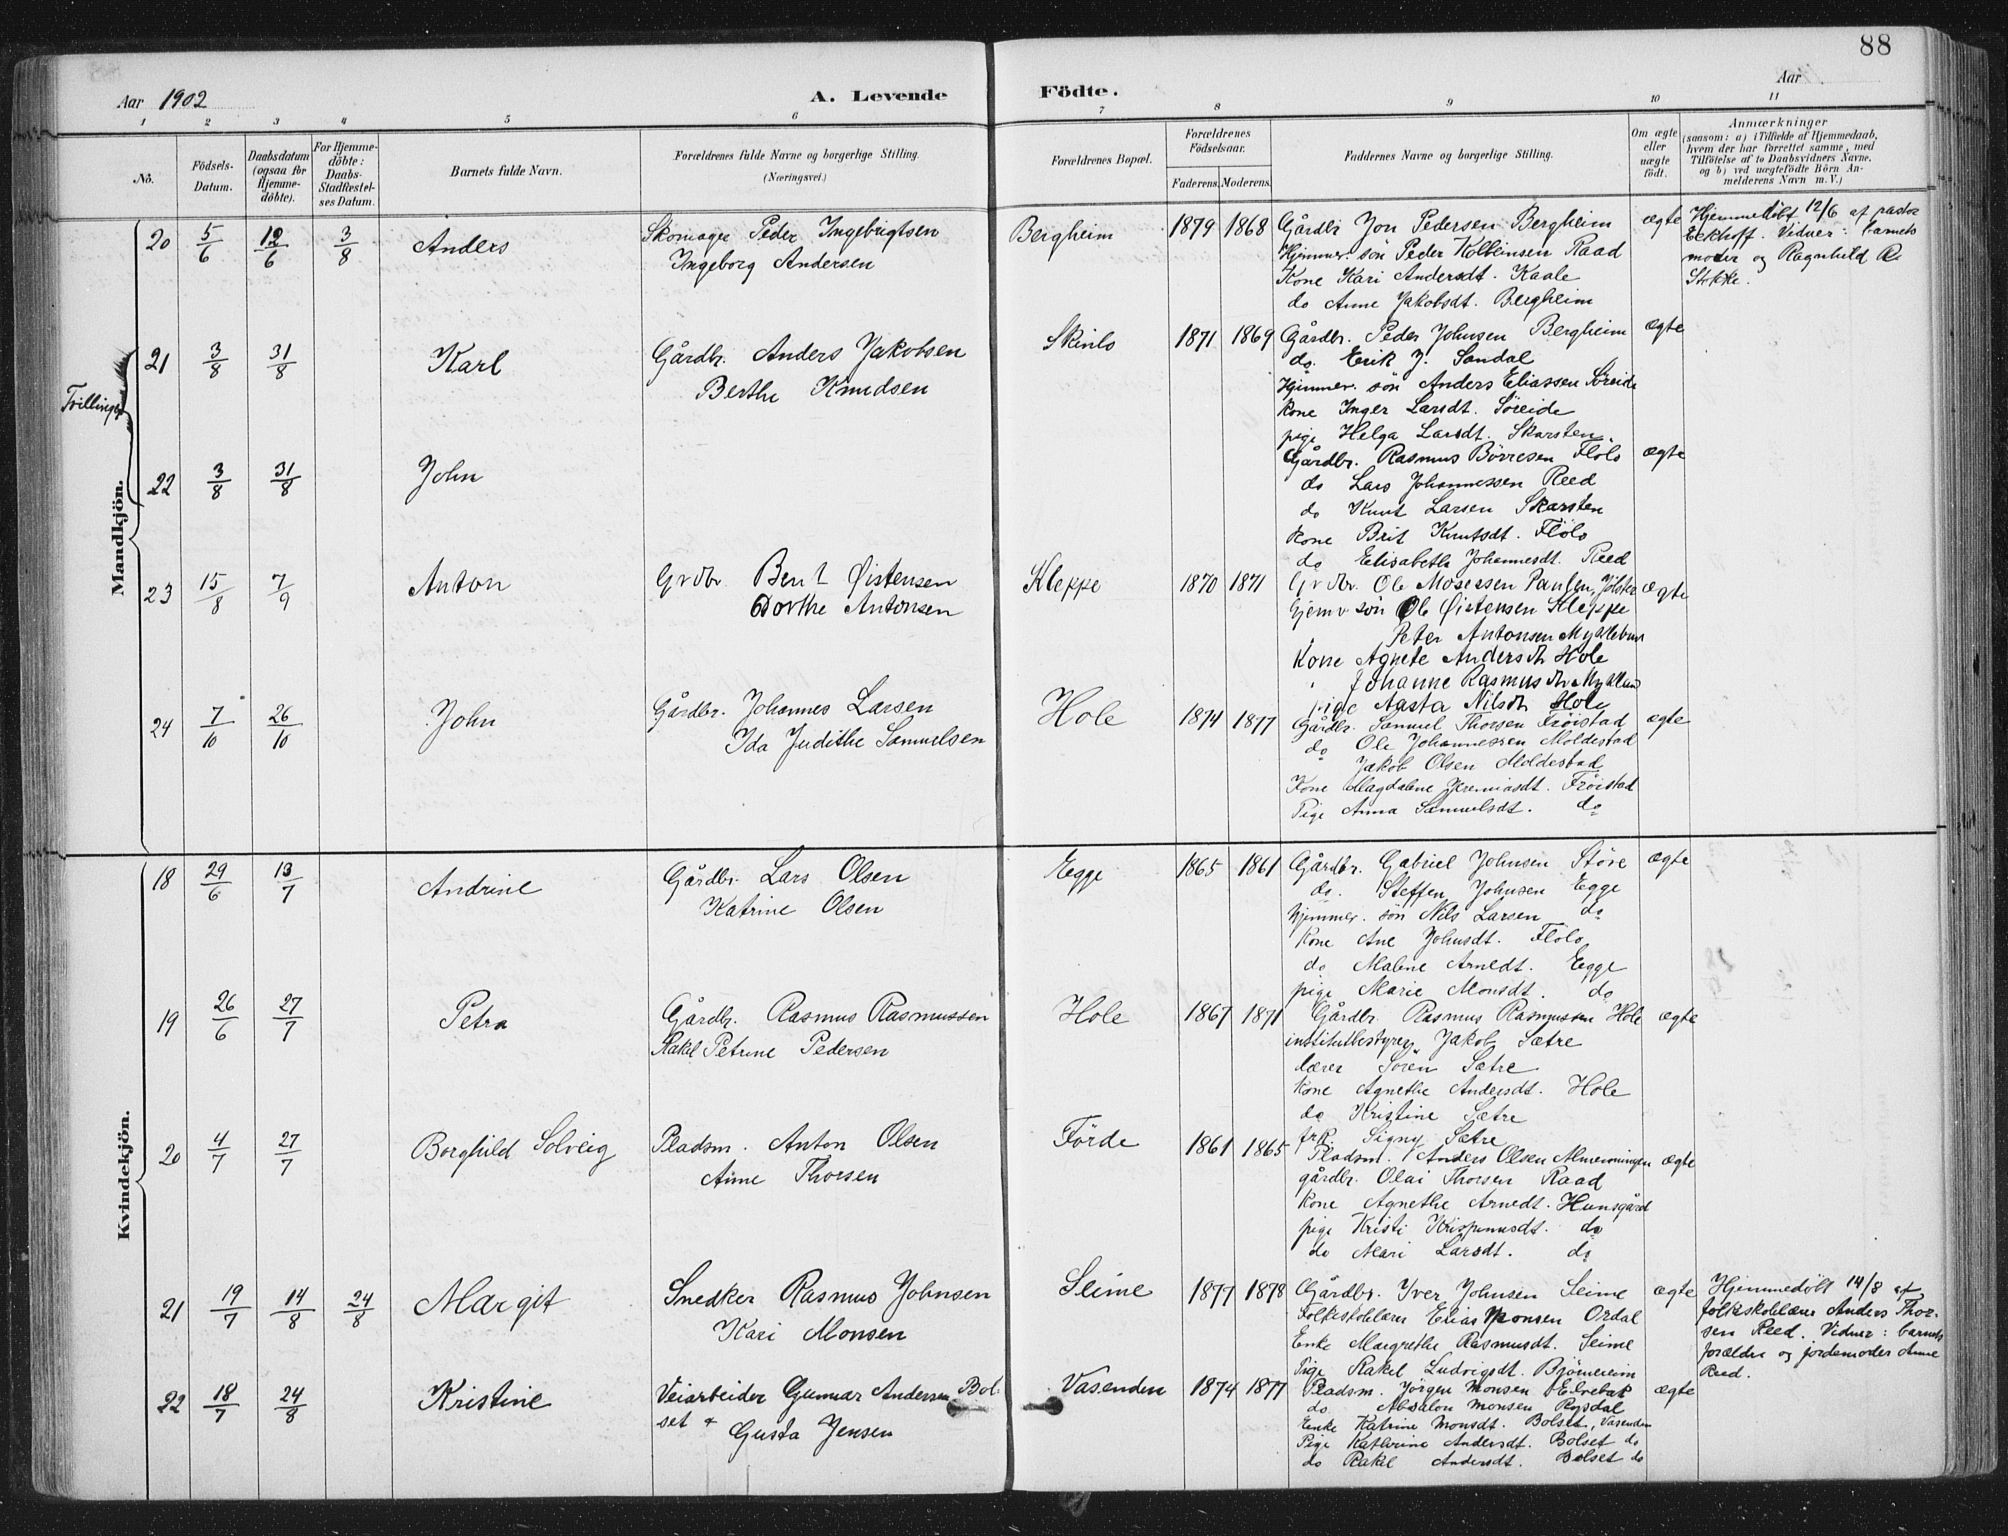 88
Aar 1902
A. Levende Födte.
Aar
1 2 3 4 5 6 7 8 9 10 11
No.
Födsels-
Datum.
Daabsdatum
(ogsaa for
Hjemme-
döbte).
For Hjemme-
döbte:
Daabs-
Stadfæstel-
ses Datum.
Barnets fulde Navn.
Forældrenes fulde Navne og borgerlige Stilling.
(Næringsvei.)
Forældrenes Bopæl.
Forældrenes
Födselsaar.
Faderens. Moderens.
Faddernes Navne og borgerlige Stilling.
Om ægte
eller
uægte
födt.
Anmærkninger
(saasom: a) i Tilfælde af Hjemmedaab,
hvem der har forrettet samme, med
Tilföielse af to Daabsvidners Navne.
og b) ved uægtefödte Börn An-
melderens Navn m. V.)
Mandkjön.
Tvillinger
20 5/6 12/6 3/8 Anders
Skomager Peder Ingebrigtsen
Ingeborg Andersen
Bergheim 1879 1868
Gårdbr Jon Pedersen Bergheim
Hjemmev. søn Peder Kolbeinsen Raad
Kone Kari Andersdt. Kaale
do Anne Jakobsdt. Bergheim
ægte
Hjemmedöbt 12/6 af pastor
Eckhoff. Vidner: barnets
moder og Ragnhild R.
Stokke.
21 3/8 31/8 Karl
Gårdbr. Anders Jakobsen
Berthe Knudsen
Skinlo 1871 1869
Gårdbr. Peder Johnsen Bergheim
do. Erik J. Sandal
Hjemmev. søn Anders Eliassen Söreide
Kone Inger Larsdt. Söreide
pige Helga Larsdt. Skarsten.
ægte
22 3/8 31/8 John
Gårdbr. Rasmus Börresen Flölo
do Lars Johannessen Reed
do Knut Larsen Skarsten
Kone Brit Knutsdt. Flölo
do Elisabeth Johannesdt. Reed
ægte
23 15/8 7/9 Anton
Grdbr. Bent Øistensen
Dorthe Antonsen
Kleppe 1870 1871
Grdbr. Ole Mosessen Paulen, Jölster
Hjemv søn Ole Øistensen Kleppe
Peter Antonsen Myklebust
Kone Agnete Andersdtr Hole
Johanne Rasmusdtr Myklebust
pige Aasta Nilsdtr Hole
ægte
24 7/10 26/10 John
Gårdbr. Johannes Larsen
Ida Judithe Samuelsen
Hole 1874 1877
Gårdbr. Samuel Thorsen Fröistad
do Ole Johannessen Moldestad
Jakob Olsen Moldestad
Kone Magdalene Jeremiasdt. Fröistad
Pige Anna Samuelsdt. do
ægte
Kvindekjön.
18 29/6 13/7 Andrine
Gårdbr. Lars Olsen
Katrine Olsen
Egge 1865 1861
Gårdbr. Gabriel Johnsen Störe
do. Steffen Johnsen Egge
hjemmev. søn Nils Larsen do
Kone Ane Johnsdt. Flölo
do Malene Arnedt. Egge
pige Marie Monsdt. do
ægte
19 26/6 27/7 Petra
Gårdbr. Rasmus Rasmussen
Rakel Petrine Pedersen
Hole 1867 1871
Gårdbr. Rasmus Rasmussen Hole
institutbestyrer Jakob Sætre
lærer Sören Sætre
Kone Agnethe Andersdt. Hole
do Kristine Sætre
frk. Signy Sætre
ægte
20 4/7 27/7 Borghild Solveig
Pladsm. Anton Olsen
Anne Thorsen
Förde 1861 1865
Pladsm. Anders Olsen Almenningen
gårdbr. Olai Thorsen Raad
Kone Agnethe Arnedt. Hunsgård
pige Kristi Krispinusdt. do
do Mari Larsdt. do
ægte
21 19/7 14/8 24/8 Margit
Snedker Rasmus Johnsen
Kari Monsen
Seime 1877 1878
Gårdbr. Iver Johnsen Seime
Folkeskolelærer Elias Monsen Ordal
Enke Margrethe Rasmusdt. Seime
Pige Rakel Ludvigsdt. Björnereim
ægte
Hjemmedöbt 14/8 af
folkeskolelærer Anders Thor-
sen Reed. Vidner: barnets
forældre og jordemoder Anne
Reed.
22 18/7 24/8 Kristine
Veiarbeider Gunnar Andersen Bol-
set +
Gusta Jensen
Vasenden 1874 1877
Pladsm. Jörgen Monsen Elvebak
do Absalon Monsen Rysdal
Enke Katrine Monsdt. Bolset, Vasenden
Pige Kathrine Andersdt. Bolset do
do Rakel Andersdt. Bolset do
ægte